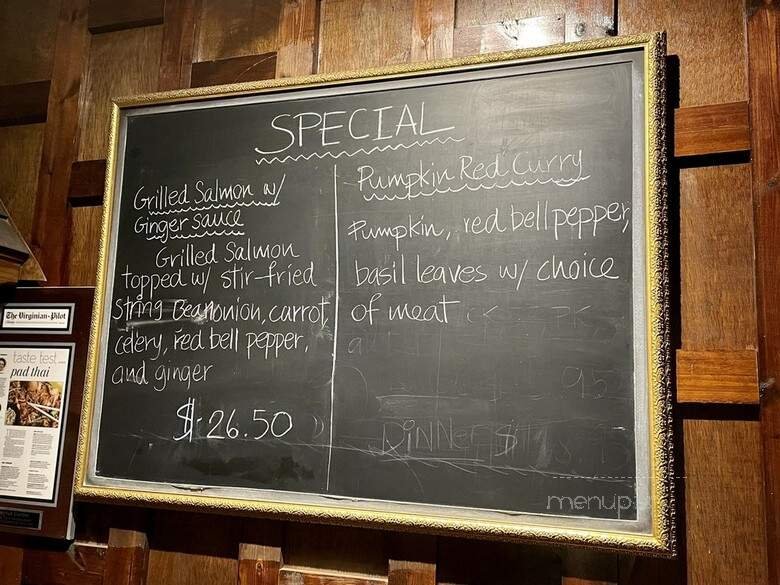 SPECIAL
Grilled Salmon w/
Ginger Sauce
Grilled Salmon
topped w/ stir-fried
string bean, onion, carrot,
celery, red bell pepper,
and ginger
$ 26.50
Pumpkin Red Curry
Pumpkin, red bell pepper,
basil leaves w/ choice
of meat
95
DINNER $
The Virginian-Pilot
taste test
pad thai
menupix